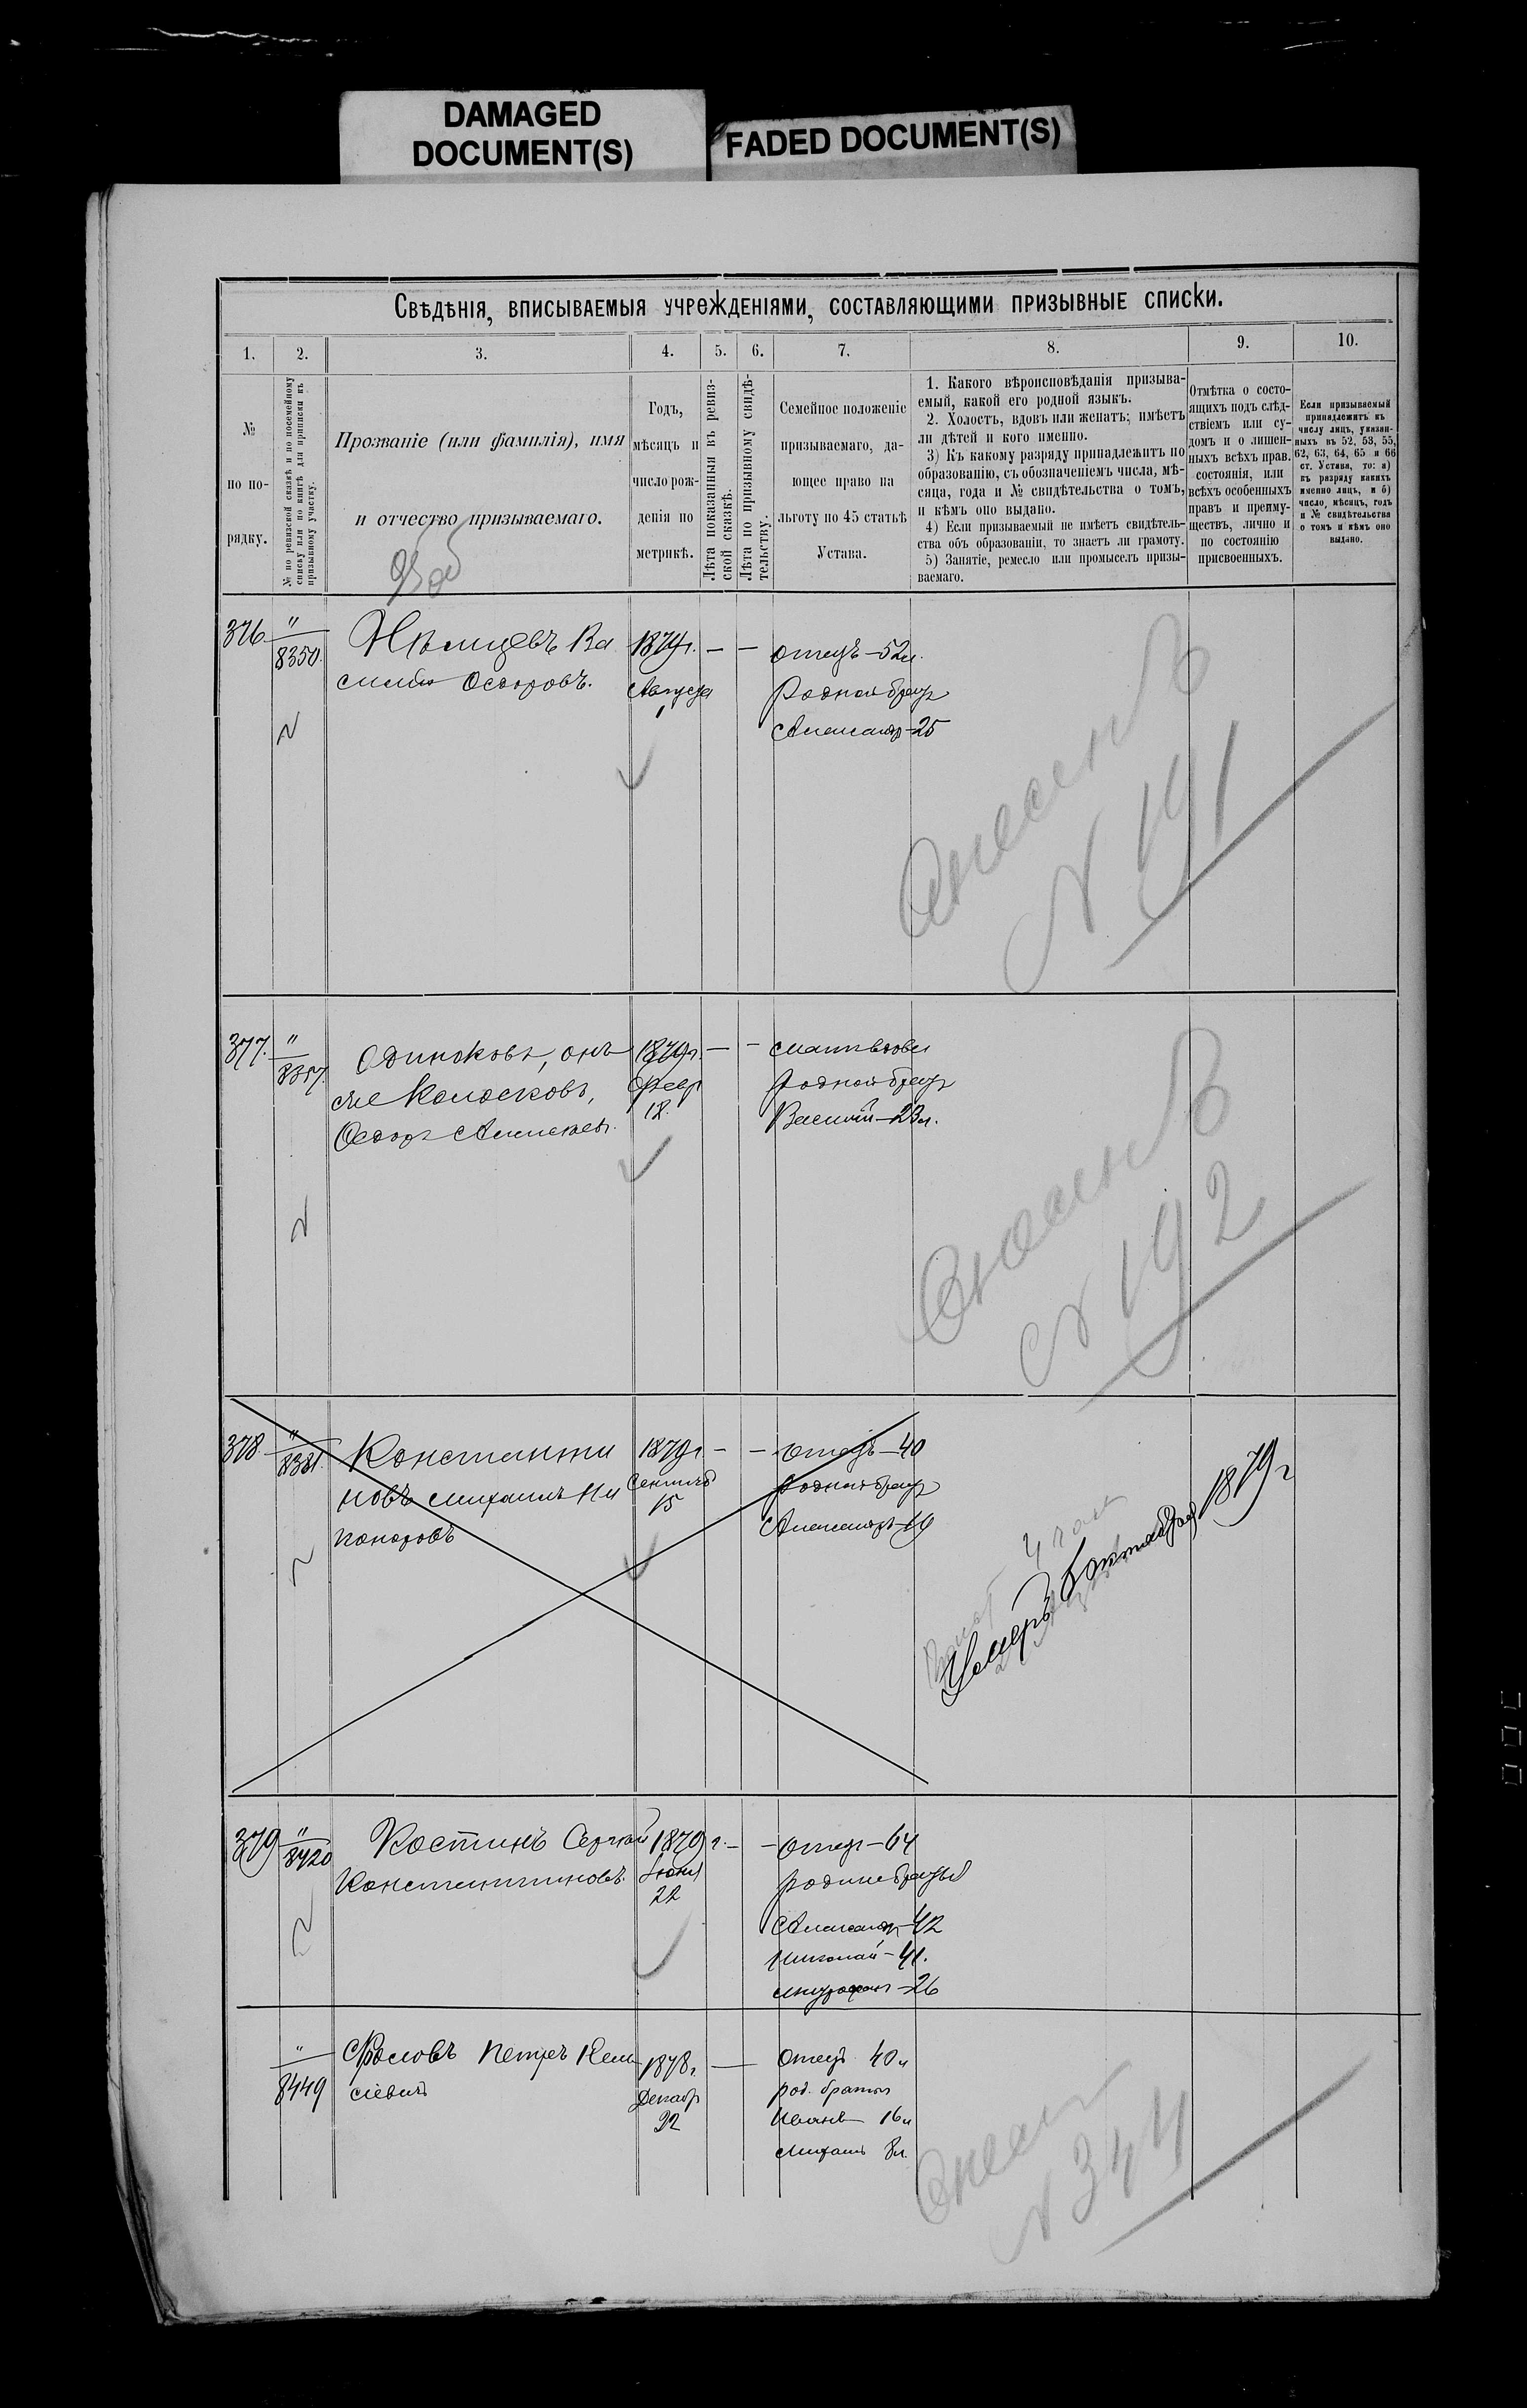 DAMAGED
DOCUMENT(S)
FADED DOCUMENT(S)
Свѣдѣнія, вписываемыя учрежденіями, составляющими призывные списки.
1.
2.
3.
4.
5.
6.
7.
8.
9.
10.
№
по по-
рядку.
№ по ревизской сказкѣ и по посемейному
списку или по книгѣ для приписки къ
призывному участку.
Прозваніе (или фамилія), имя
и отчество призываемаго.
Годъ,
мѣсяцъ и
число рож-
денія по
метрикѣ.
Лѣта показанныя въ ревиз-
ской сказкѣ.
Лѣта по призывному свидѣ-
тельству.
Семейное положеніе
призываемаго, да-
ющее право на
льготу по 45 статьѣ
Устава.
1. Какого вѣроисповѣданія призыва-
емый, какой его родной языкъ.
2. Холость, вдовъ или женатъ; имѣетъ
ли дѣтей и кого именно.
3) Къ какому разряду принадлежитъ по
образованію, съ обозначеніемъ числа, мѣ-
сяца, года и № свидѣтельства о томъ,
и кѣмъ оно выдано.
4) Если призываемый не имѣетъ свидѣтель-
ства объ образованіи, то знаетъ ли грамоту.
5) Занятіе, ремесло или промыселъ призы-
ваемаго.
Отмѣтка о состо-
ящихъ подъ слѣд-
ствіемъ или су-
домъ и о лишен-
ныхъ всѣхъ прав.
состоянія, или
всѣхъ особенныхъ
правъ и преиму-
ществъ, лично и
по состоянію
присвоенныхъ.
Если призываемый
принадлежитъ къ
числу лицъ, указан-
ныхъ въ 52, 53, 55,
62, 63, 64, 65 и 66
ст. Устава, то: а)
къ разряду какихъ
именно лицъ, и б)
число, мѣсяцъ, годъ
и № свидѣтельства
о томъ и кѣмъ оно
выдано.
376
"
8350.
Нѣмцевъ Ва
силій Ѳедоровъ.
1879г.
Августа
1
— —
отецъ — 52л.
Родной братъ
Александр — 25
Внесенъ
№ 191
377.
"
8357.
Одиноковъ, онъ
же Колосковъ,
Ѳедоръ Алексѣев.
1879г.
Февр
18.
— —
мать вдова
родной братъ
Василій — 23л.
Внесенъ
№ 192
378.
"
8381.
Константи
новъ Михаилъ Ни
каноровъ
1879г.
Сентяб
15
— —
отецъ — 40
родной братъ
Александръ — 19
Умеръ
октября 1879г
379
"
8420
Костинъ Сергѣй
Константиновъ.
1879г.
Іюня
22
— —
отец — 64
родные братья
Александр — 42
Николай — 41.
Митрофанъ — 26
"
8449
Фроловъ Петръ
1878г.
Декабр
22
Отецъ 40л
род. братья
Иванъ — 16л
Михаилъ 8л.
Внесен
№ 344